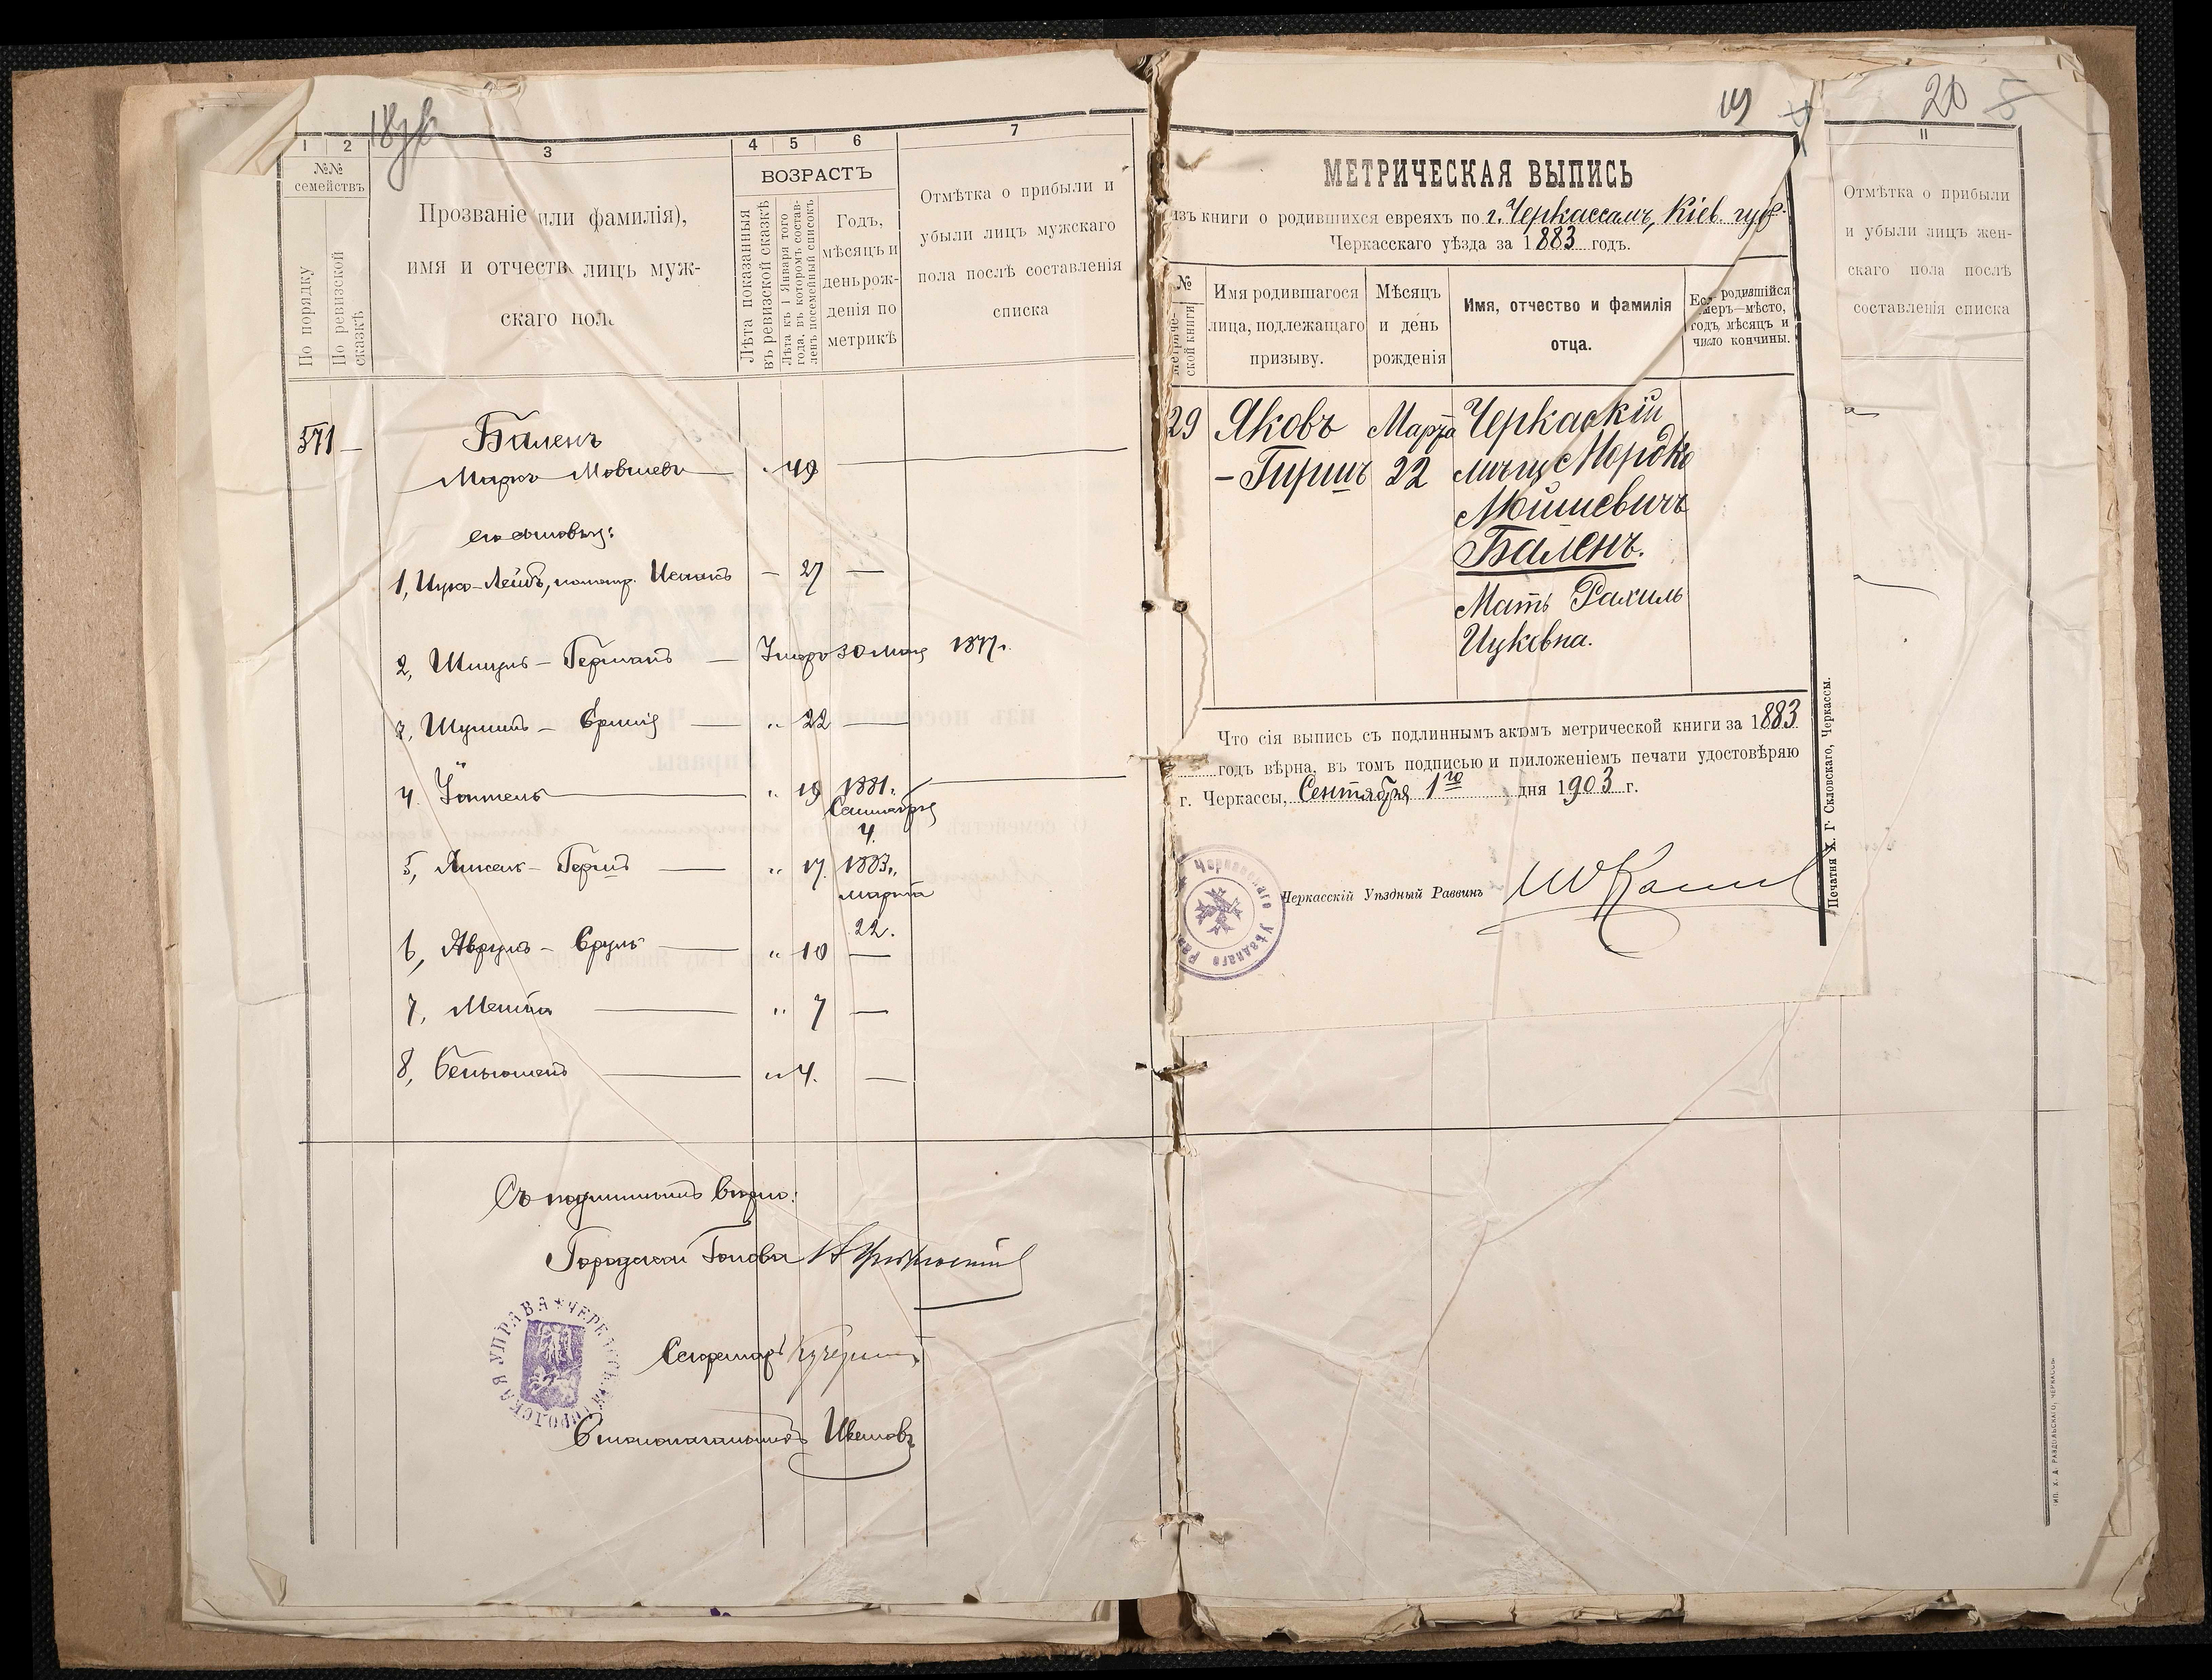 1
2
3
4
5
6
7
№№
семействъ
По порядку
По ревизской
сказкѣ
Прозваніе (или фамилія),
имя и отчеств лицъ муж-
скаго пол
ВОЗРАСТЪ
Лѣта показанныя
въ ревизской сказкѣ
Лѣта къ 1 Января того
года, въ которомъ состав-
ленъ посемейный списокъ
Годъ,
мѣсяцъ и
день рож-
денія по
метрикѣ
Отмѣтка о прибыли и
убыли лицъ мужскаго
пола послѣ составленія
списка
571 —
Баленъ
Мовшевъ — " 49
его сыновья:
1, Ицко-Лейбъ, — 27 —
2, Шмуль-Германъ — Умеръ 30 1877 г.
3, — " 22 —
4. — " 19 1881 г.
Сентября
4.
5, Янкель-Гершъ — " 17. 1883 г.
марта
22.
6, Аврумъ-Сруль — " 10 —
7, — " 7 —
8, Беньюменъ — " 4. —
Съ подлиннымъ вѣрно:
Городской Голова
Секретарь
Столоначальникъ
ГОРОДСКАЯ УПРАВА
19
20
МЕТРИЧЕСКАЯ ВЫПИСЬ
изъ книги о родившихся евреяхъ по г. Черкассамъ, Кіев. губ.
Черкасскаго уѣзда за 1883 годъ.
№
метриче-
ской книги
Имя родившагося
лица, подлежащаго
призыву.
Мѣсяцъ
и день
рожденія
Имя, отчество и фамилія
отца.
родившійся
меръ—мѣсто,
годъ, мѣсяцъ и
число кончины.
29 Яковъ Марта Черкаскій
-Гиршъ 22 мѣщ. Мордко
Мойшевичъ
Баленъ.
Мать Рахиль
Ицковна.
Что сія выпись съ подлиннымъ актомъ метрической книги за 1883
годъ вѣрна, въ томъ подписью и приложеніемъ печати удостовѣряю
г. Черкассы, Сентября 1го дня 1903 г.
Черкасскій Уѣздный Раввинъ
Черкасскаго Уѣзднаго
Печатня Х. Г. Скловскаго, Черкассы.
11
Отмѣтка о прибыли
и убыли лицъ жен-
скаго пола послѣ
составленія списка